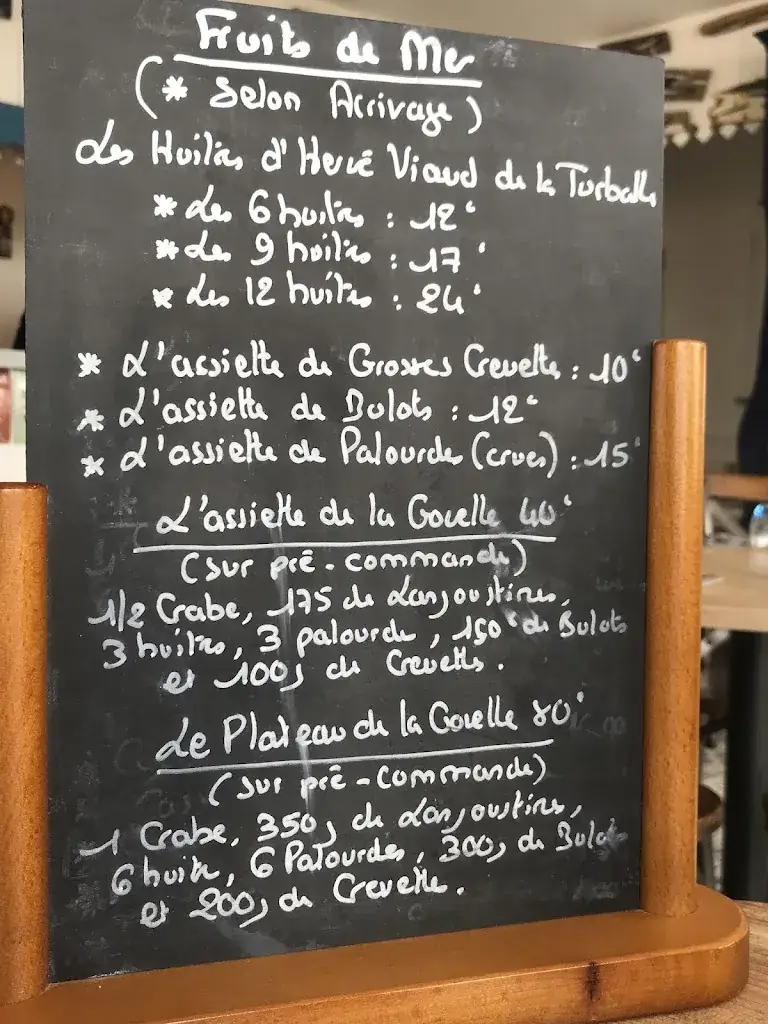 Fruits de Mer
(* Selon Arrivage)
Les Huîtres d'Hervé Viaud de la Turballe
* Les 6 huîtres : 12€
* Les 9 huîtres : 17€
* Les 12 huîtres : 24€
* L'assiette de Grosses Crevettes : 10€
* L'assiette de Bulots : 12€
* L'assiette de Palourdes (crues) : 15€
L'assiette de la Govelle 40€
(sur pré-commande)
1/2 Crabe, 175 de Langoustines,
3 huîtres, 3 palourde, 150g de Bulots
et 100g de Crevettes.
Le Plateau de la Govelle 80€
(sur pré-commande)
1 Crabe, 350g de Langoustines,
6 huîtr, 6 Palourdes, 300g de Bulots
et 200g de Crevette.